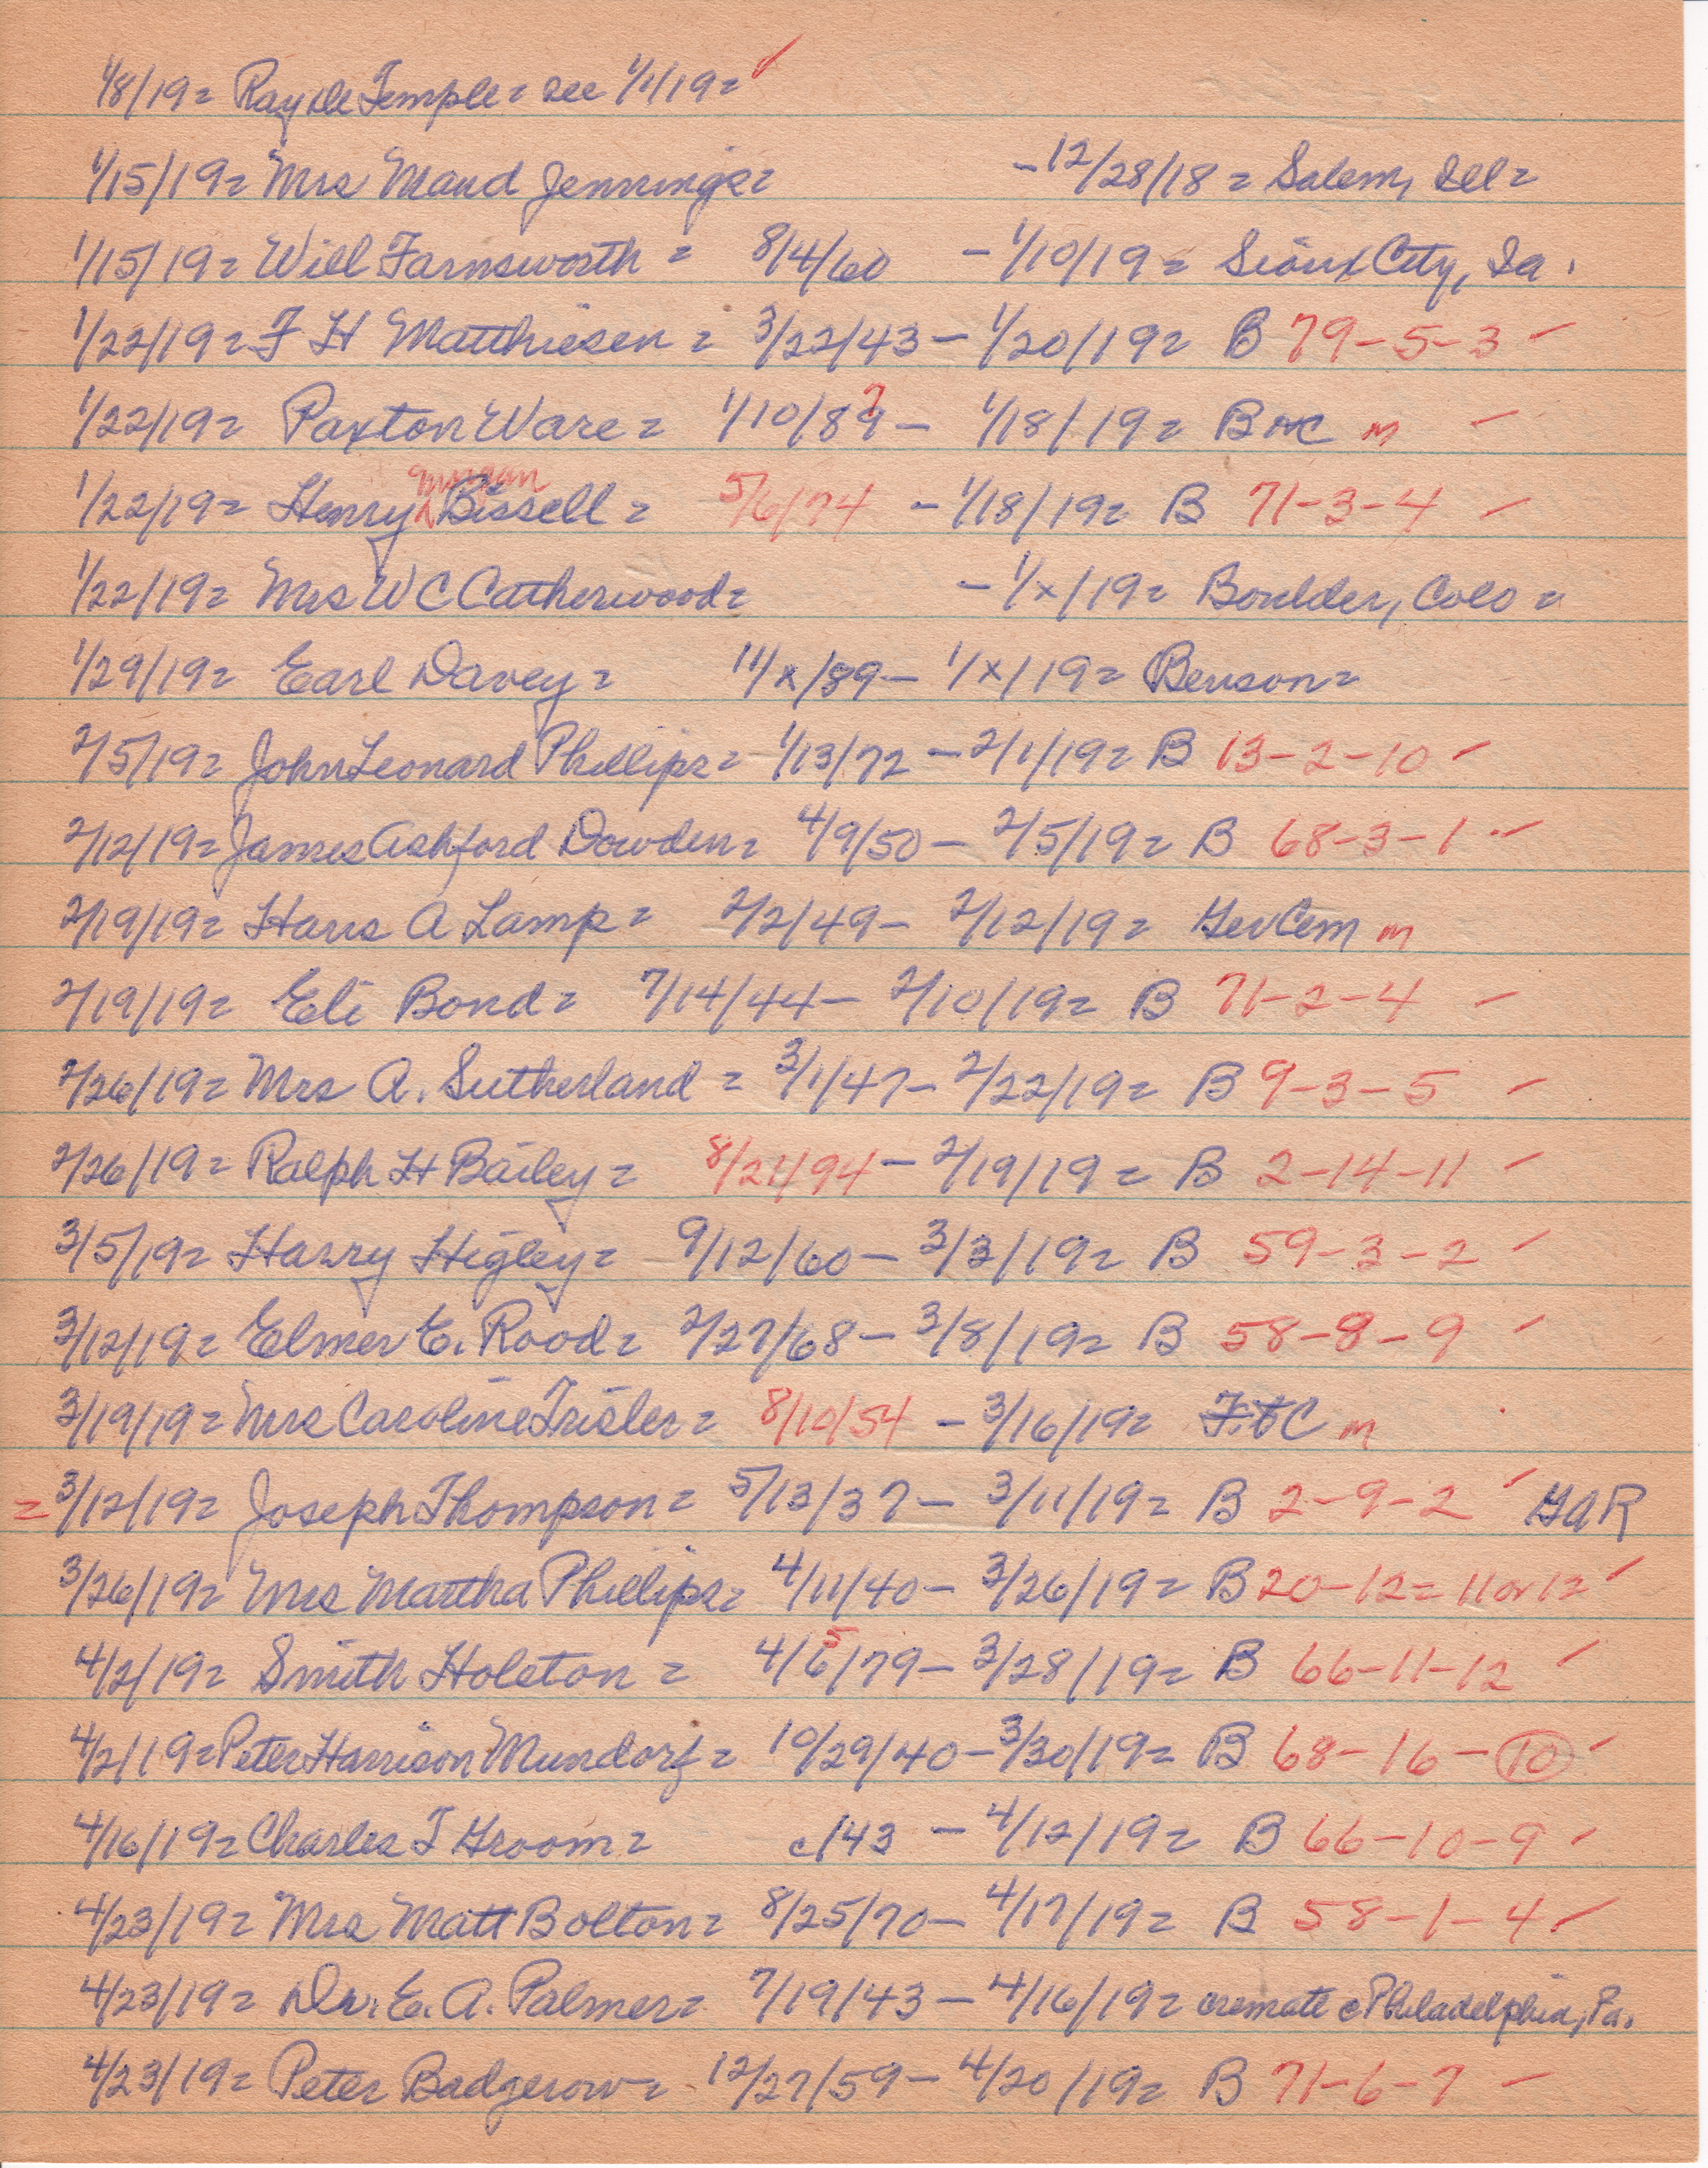 1/8/19= Ray De Temple= see 1/1/19= ✓
1/15/19= Mrs Maud Jennings= -12/28/18= Salem, Ill=
1/15/19= Will Farnsworth= 8/4/60 -1/10/19= Sioux City, Ia.
1/22/19= F H Matthiesen= 3/22/43- 1/20/19= B 79-5-3 -
1/22/19= Paxton Ware= 1/10/89 ? - 1/18/19= B m -
1/22/19= Henry Morgan Bissell= 5/6/74 -1/18/19= B 71-3-4 -
1/22/19= Mrs W C Catherwood= -1/x/19= Boulder, Colo=
1/29/19= Earl Davey= 11/x/89- 1/x/19= Benson=
2/5/19= John Leonard Phillips= 1/13/72 -2/1/19= B 13-2-10 -
2/12/19= James Ashford Dowden= 4/9/50- 2/5/19= B 68-3-1 -
2/19/19= Hans A Lamp= 2/2/49- 2/12/19= Ger Cem m
2/19/19= Eli Bond= 7/14/44- 2/10/19= B 71-2-4 -
2/26/19= Mrs A. Sutherland= 3/1/47- 2/22/19= B 9-3-5 -
2/26/19= Ralph H Bailey= 8/21/94- 2/19/19= B 2-14-11 -
3/5/19= Harry Higley= 9/12/60- 3/3/19= B 59-3-2 -
3/12/19= Elmer E. Rood= 2/27/68- 3/8/19= B 58-8-9 -
3/19/19= Mrs Caroline Trisler= 8/10/54 -3/16/19= C m
= 3/12/19= Joseph Thompson= 5/13/37- 3/11/19= B 2-9-2 - GAR
3/26/19= Mrs Martha Phillips= 4/11/40- 3/26/19= B 20-12= 11 or 12 -
4/2/19= Smith Holeton= 4/6 5/79- 3/28/19= B 66-11-12 -
4/2/19= Peter Harrison Mundorf= 10/29/40-3/30/19= B 68-16-10 -
4/16/19= Charles T Groom= c/43 -4/12/19= B 66-10-9 -
4/23/19= Mrs Matt Bolton= 8/25/70- 4/17/19= B 58-1-4 -
4/23/19= Dr. E. A. Palmer= 7/19/43- 4/16/19= cremate c Philadelphia, Pa.
4/23/19= Peter Badgerow= 12/27/59- 4/20/19= B 71-6-7 -